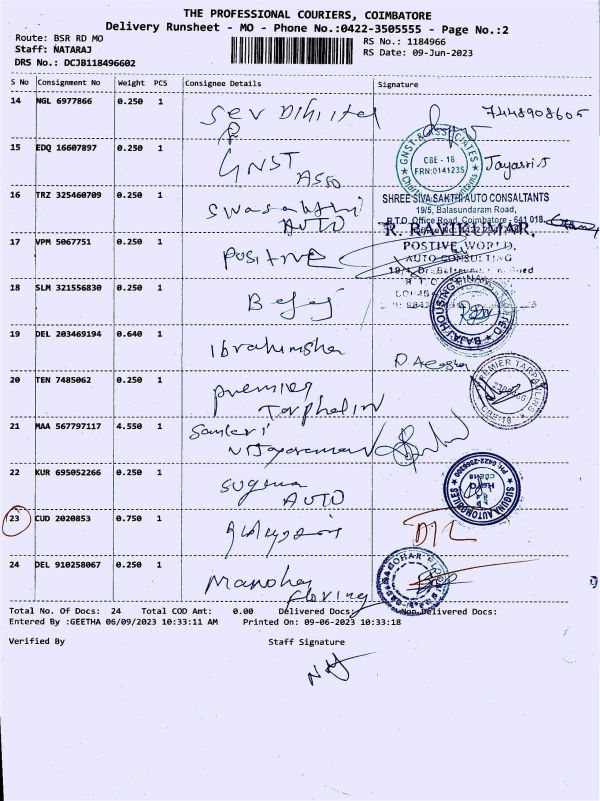 THE PROFESSIONAL COURIERS, COIMBATORE
Delivery Runsheet - MO - Phone No.:0422-3505555 - Page No.:2
Route: BSR RD MO
RS No.: 1184966
Staff: NATARAJ
RS Date: 09-Jun-2023
DRS No.: DCJB118496602
S No Consignment No Weight PCS Consignee Details Signature
14 NGL 6977866 0.250 1 7448908605
15 EDQ 16607897 0.250 1 GNST ASSO Jayasri.S
GNST ASSOCIATES
CBE - 18
FRN:014123S
16 TRZ 325460709 0.250 1 Swasakthi AUTO
SHREE SIVA SAKTHI AUTO CONSALTANTS
19/5, Balasundaram Road,
R.T.O. Office Road, Coimbatore - 541 018.
17 VPM 5067751 0.250 1 Positive
R. RAVIKUMAR,
POSTIVE WORLD,
AUTO CONSULTING
18 SLM 321556830 0.250 1 Bajaj
BAJAJ HOUSING FINANCE LIMITED
19 DEL 203469194 0.640 1 Ibrahimsha
20 TEN 7485062 0.250 1 Premier Tarphalin
PREMIER TARPAULING
CBE-18
21 MAA 567797117 4.550 1
22 KUR 695052266 0.250 1 Suguna AUTO
SUGUNA AUTOMOBILES
23 CUD 2020853 0.750 1
24 DEL 910258067 0.250 1 Manohar
Total No. Of Docs: 24 Total COD Amt: 0.00 Delivered Docs: Non Delivered Docs:
Entered By :GEETHA 06/09/2023 10:33:11 AM Printed On: 09-06-2023 10:33:18
Verified By Staff Signature